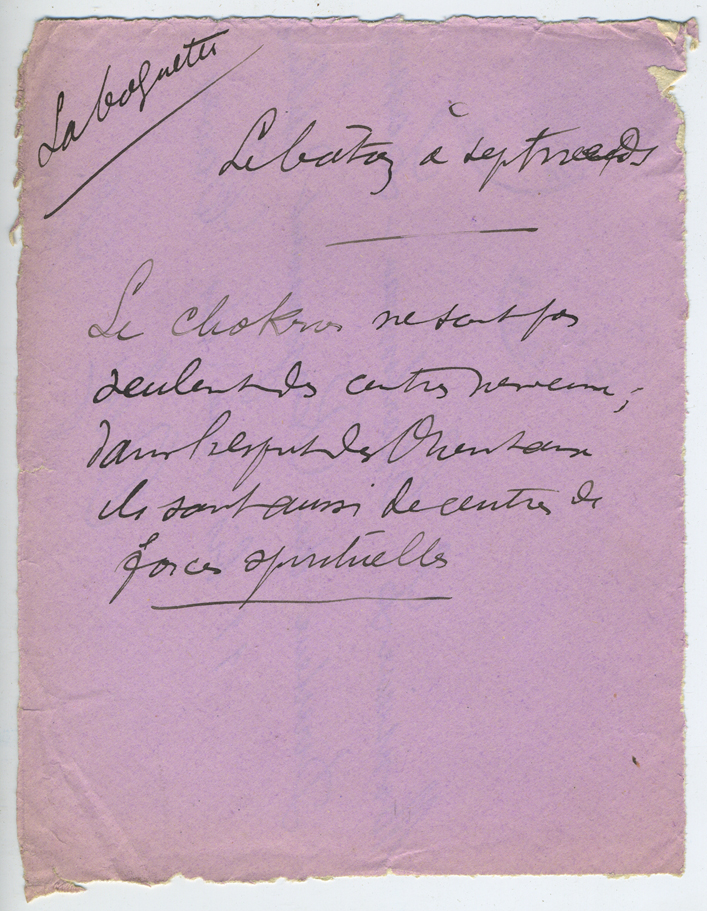 La baguette
Le baton à sept nœuds
Le chakras ne sont pas
seulement des centres nerveux ;
dans l'esprit des Orientaux
ils sont aussi de centres de
forces spirituelles